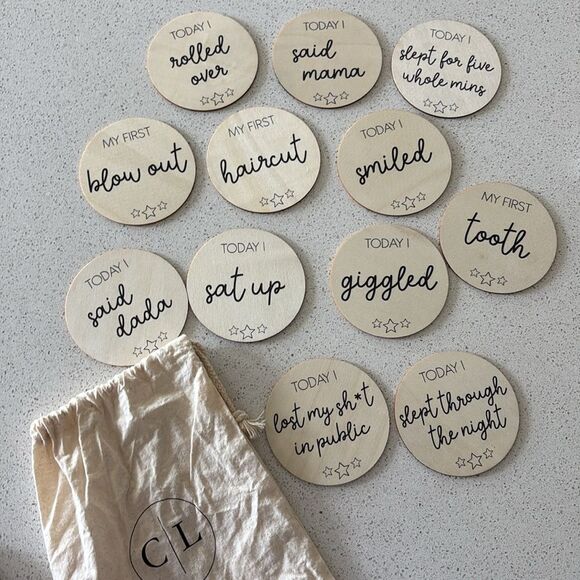 TODAY I
rolled
over
TODAY I
said
mama
TODAY I
slept for five
whole mins
MY FIRST
blow out
MY FIRST
haircut
TODAY I
smiled
MY FIRST
tooth
TODAY I
said
dada
TODAY I
sat up
TODAY I
giggled
TODAY I
lost my sh*t
in public
TODAY I
slept through
the night
C|L